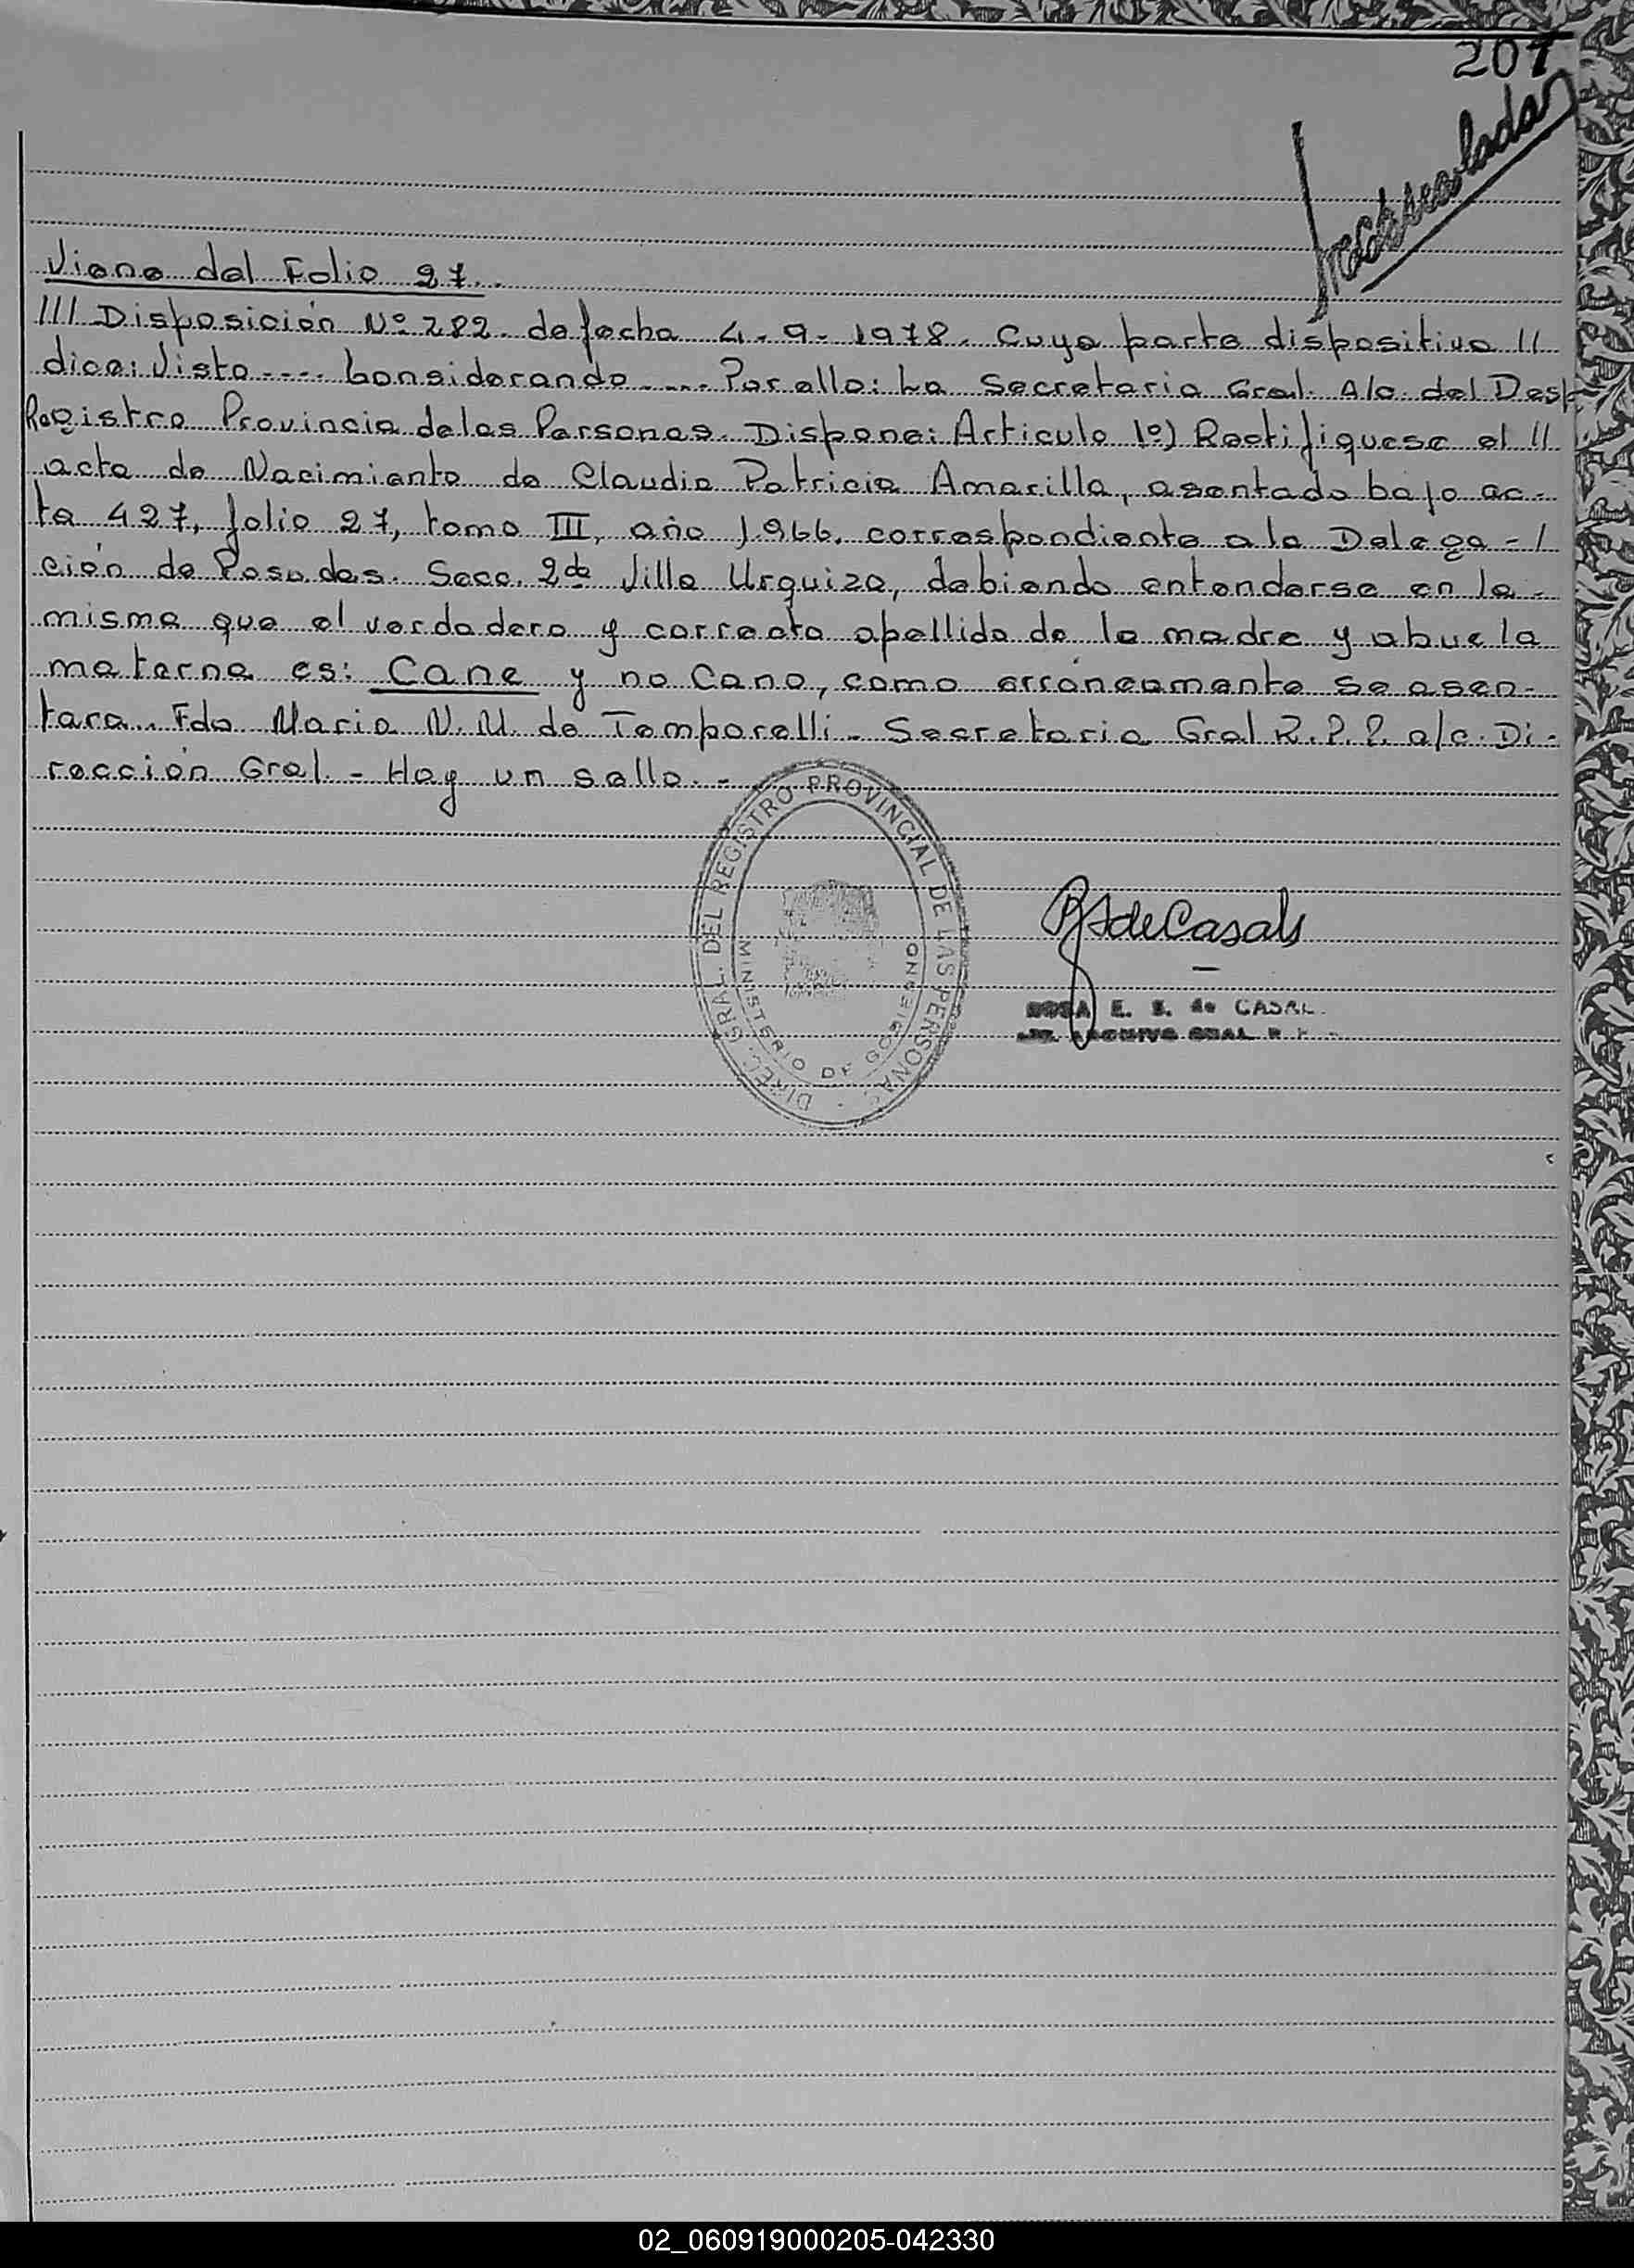 207
Viene del Folio 27.
III Disposición Nº 282. de fecha 4-9-1978. Cuya parte dispositiva //
dice: Visto .... Considerando .... Por ello: La Secretaria Gral. A/c. del Desp
Registro Provincia de las Personas. Dispone: Articulo 1º) Rectifiquese el //
acta de Nacimiento de Claudia Patricia Amarilla, asentado bajo ac-
ta 427, folio 27, tomo III, año 1.966. correspondiente a la Delega-/
ción de Posadas. Secc. 2da Villa Urquiza, debiendo entenderse en la-
misma que el verdadero y correcto apellido de la madre y abuela
materna es: Cane y no Cano, como erróneamente se asen-
tara. Fdo Maria N. M. de Temporelli - Secretaria Gral R.P.P. a/c. Di-
rección Gral. - Hay un sello. -
DIREC. GRAL. DEL REGISTRO PROVINCIAL DE LAS PERSONAS -
MINISTERIO DE GOBIERNO
RSdeCasals
ROSA E. S. de CASAL
ARCHIVO GRAL R.P.
02_060919000205-042330